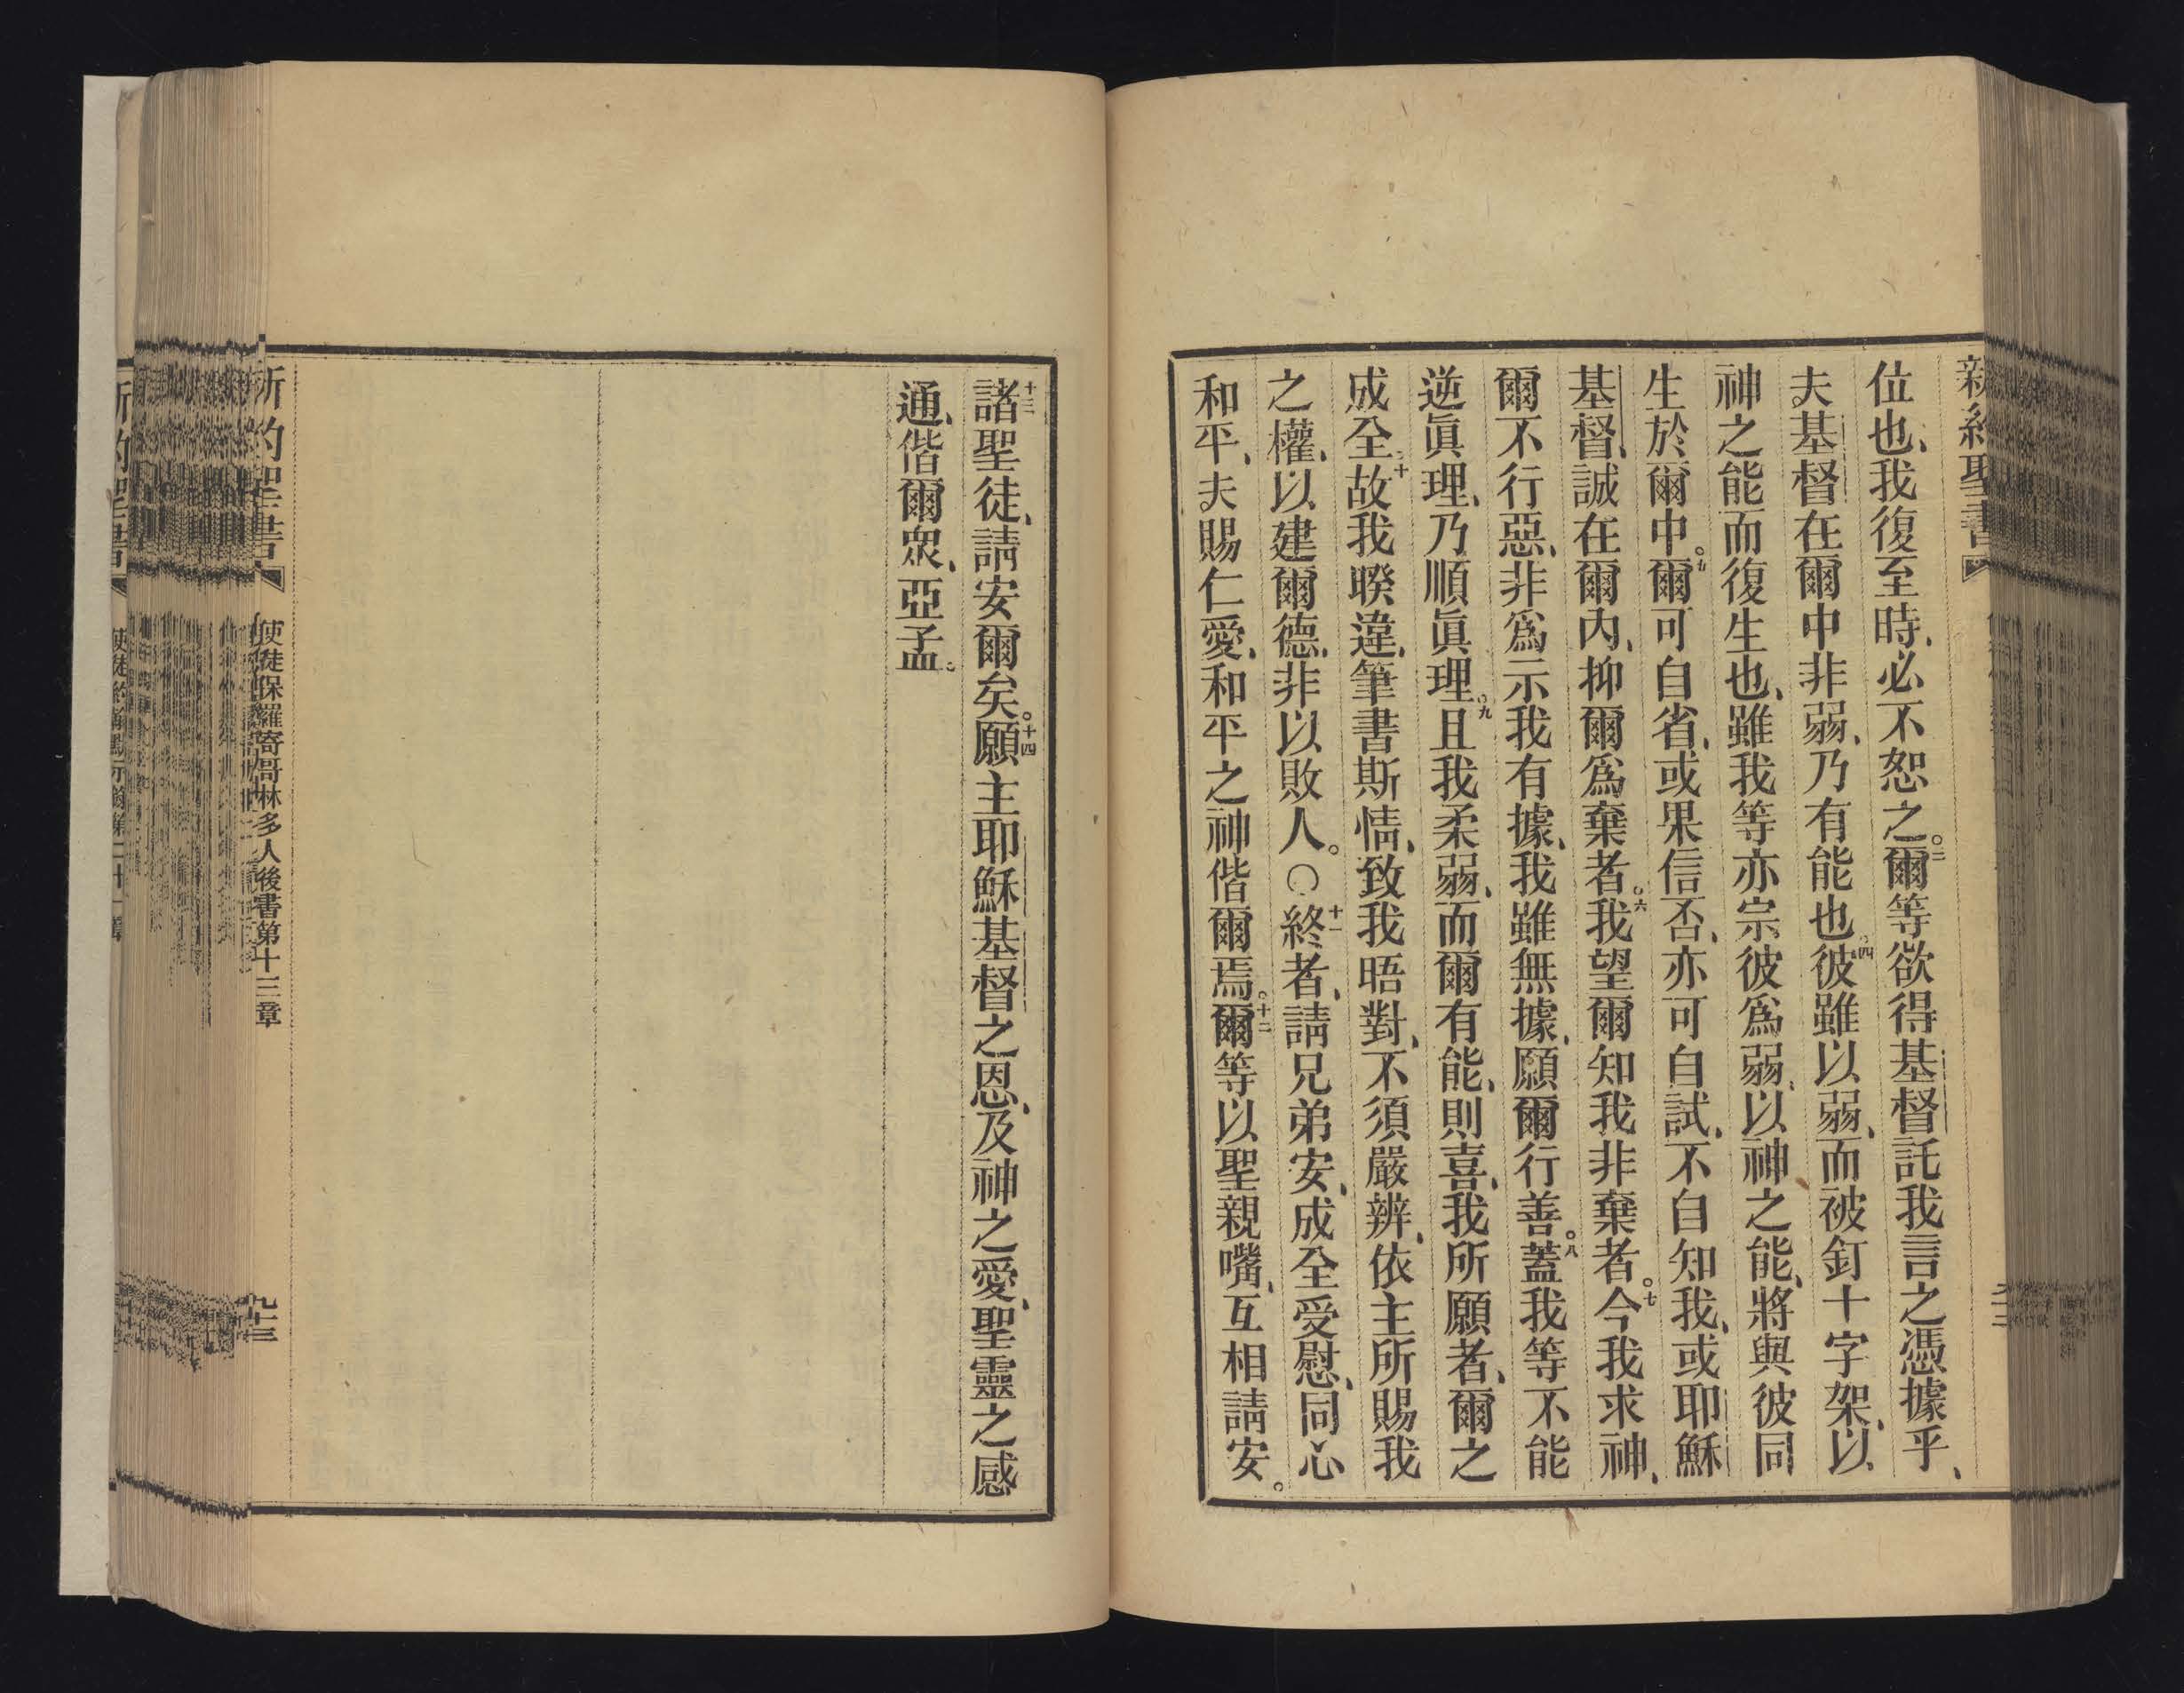 新約聖書
位也、我復至時、必不恕之。三爾等欲得基督託我言之憑據乎、
夫基督在爾中非弱、乃有能也。四彼雖以弱、而被釘十字架、以
神之能而復生也、雖我等亦宗彼爲弱、以神之能、將與彼同
生於爾中。五爾可自省、或果信否、亦可自試、不自知我、或耶穌
基督、誠在爾內、抑爾爲棄者。六我望爾知我非棄者。七今我求神、
爾不行惡、非爲示我有據、我雖無據、願爾行善。八蓋我等不能
逆眞理、乃順眞理。九且我柔弱、而爾有能、則喜、我所願者、爾之
成全。十故我暌違、筆書斯情、致我晤對、不須嚴辨、依主所賜我
之權、以建爾德、非以敗人。〇十一終者、請兄弟安、成全受慰、同心
和平、夫賜仁愛、和平之神偕爾焉。十二爾等以聖親嘴、互相請安。
十三諸聖徒、請安爾矣。十四願主耶穌基督之恩、及神之愛、聖靈之感
通、偕爾衆、亞孟。
新約聖書
使徒保羅寄哥林多人後書第十三章
九十三
新約聖書